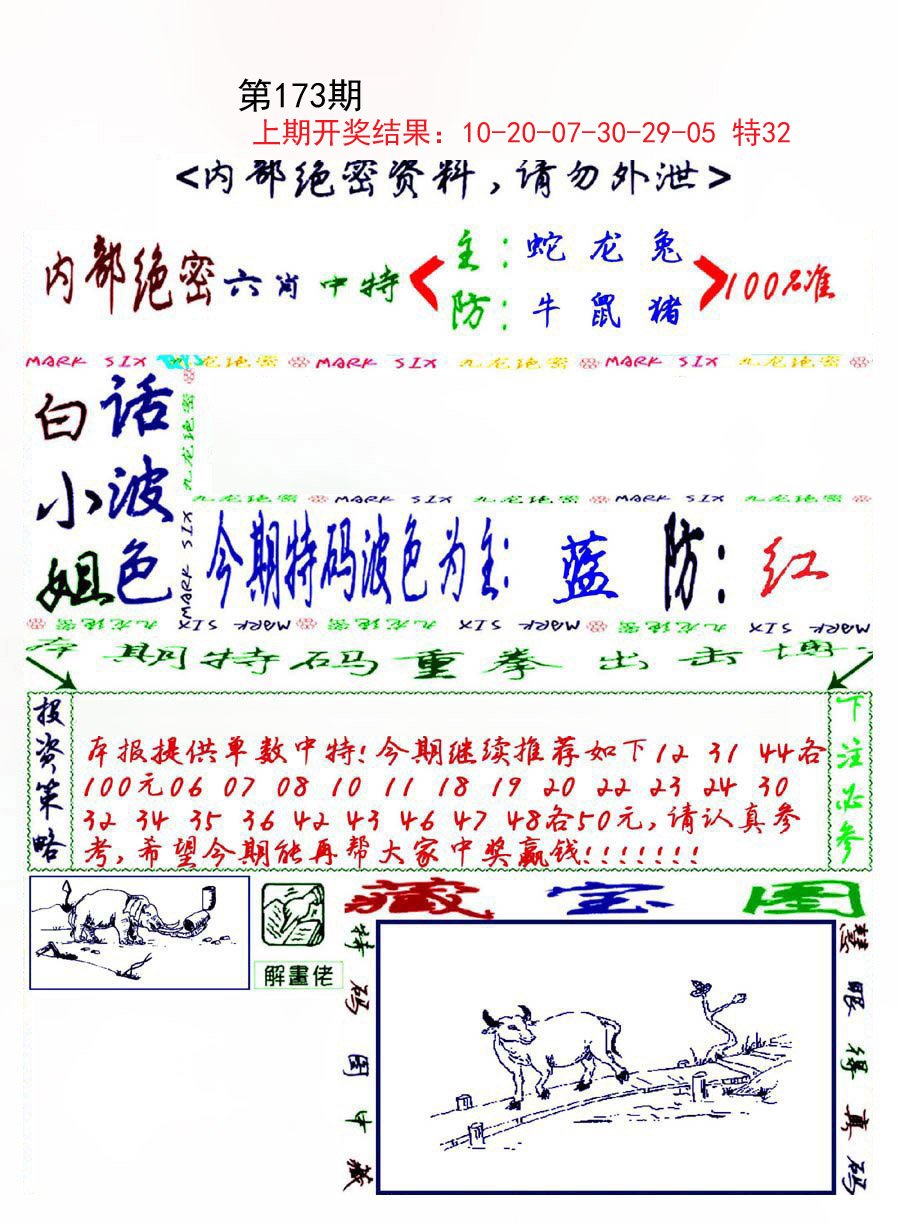 第173期
上期开奖结果：10-20-07-30-29-05 特32
<内部绝密资料,请勿外泄>
内部绝密六肖中特
主：蛇 龙 兔
防：牛 鼠 猪
100%准
MARK SIX 九龙绝密 MARK SIX 九龙绝密 MARK SIX 九龙绝密
九龙绝密 MARK SIX
白话
小波
姐色
九龙绝密 MARK SIX 九龙绝密 MARK SIX 九龙绝密
今期特码波色为主: 蓝 防: 红
九龙绝密 MARK SIX 九龙绝密 MARK SIX 九龙绝密 MARK SIX
本期特码重拳出击博
投资策略
本报提供单数中特!今期继续推荐如下12 31 44各
100元06 07 08 10 11 18 19 20 22 23 24 30
32 34 35 36 42 43 46 47 48各50元,请认真参
考,希望今期能再帮大家中奖赢钱!!!!!!!
下注必参
解畫佬
藏宝图
特码图中藏
慧眼得真码